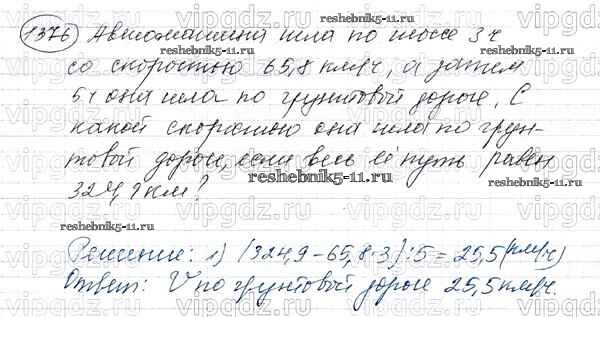 1376 Автомашина шла по шоссе 3 ч
со скоростью 65,8 км/ч, а затем
5 ч она шла по грунтовой дороге. С
какой скоростью она шла по грун-
товой дороге, если весь её путь равен
324,9 км?
Решение: 1) (324,9-65,8·3):5=25,5(км/ч)
Ответ: V по грунтовой дороге 25,5 км/ч.
vipgdz.ru
reshebnik5-11.ru